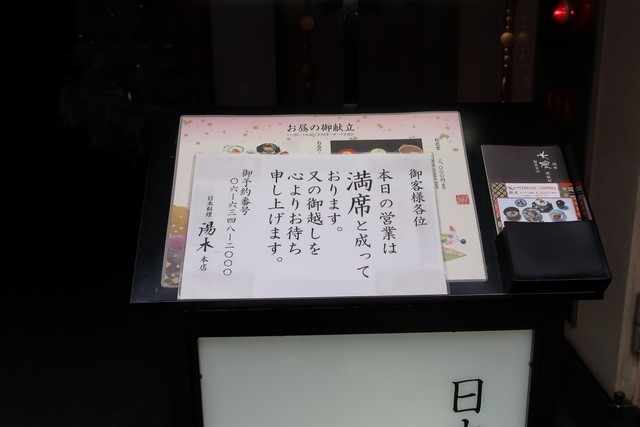 お昼の御献立
御客様各位
本日の営業は
満席と成って
おります。
又の御越しを
心よりお待ち
申し上げます。
御予約番号
〇六-六三四八-二〇〇〇
日本料理 湯木 本店
日